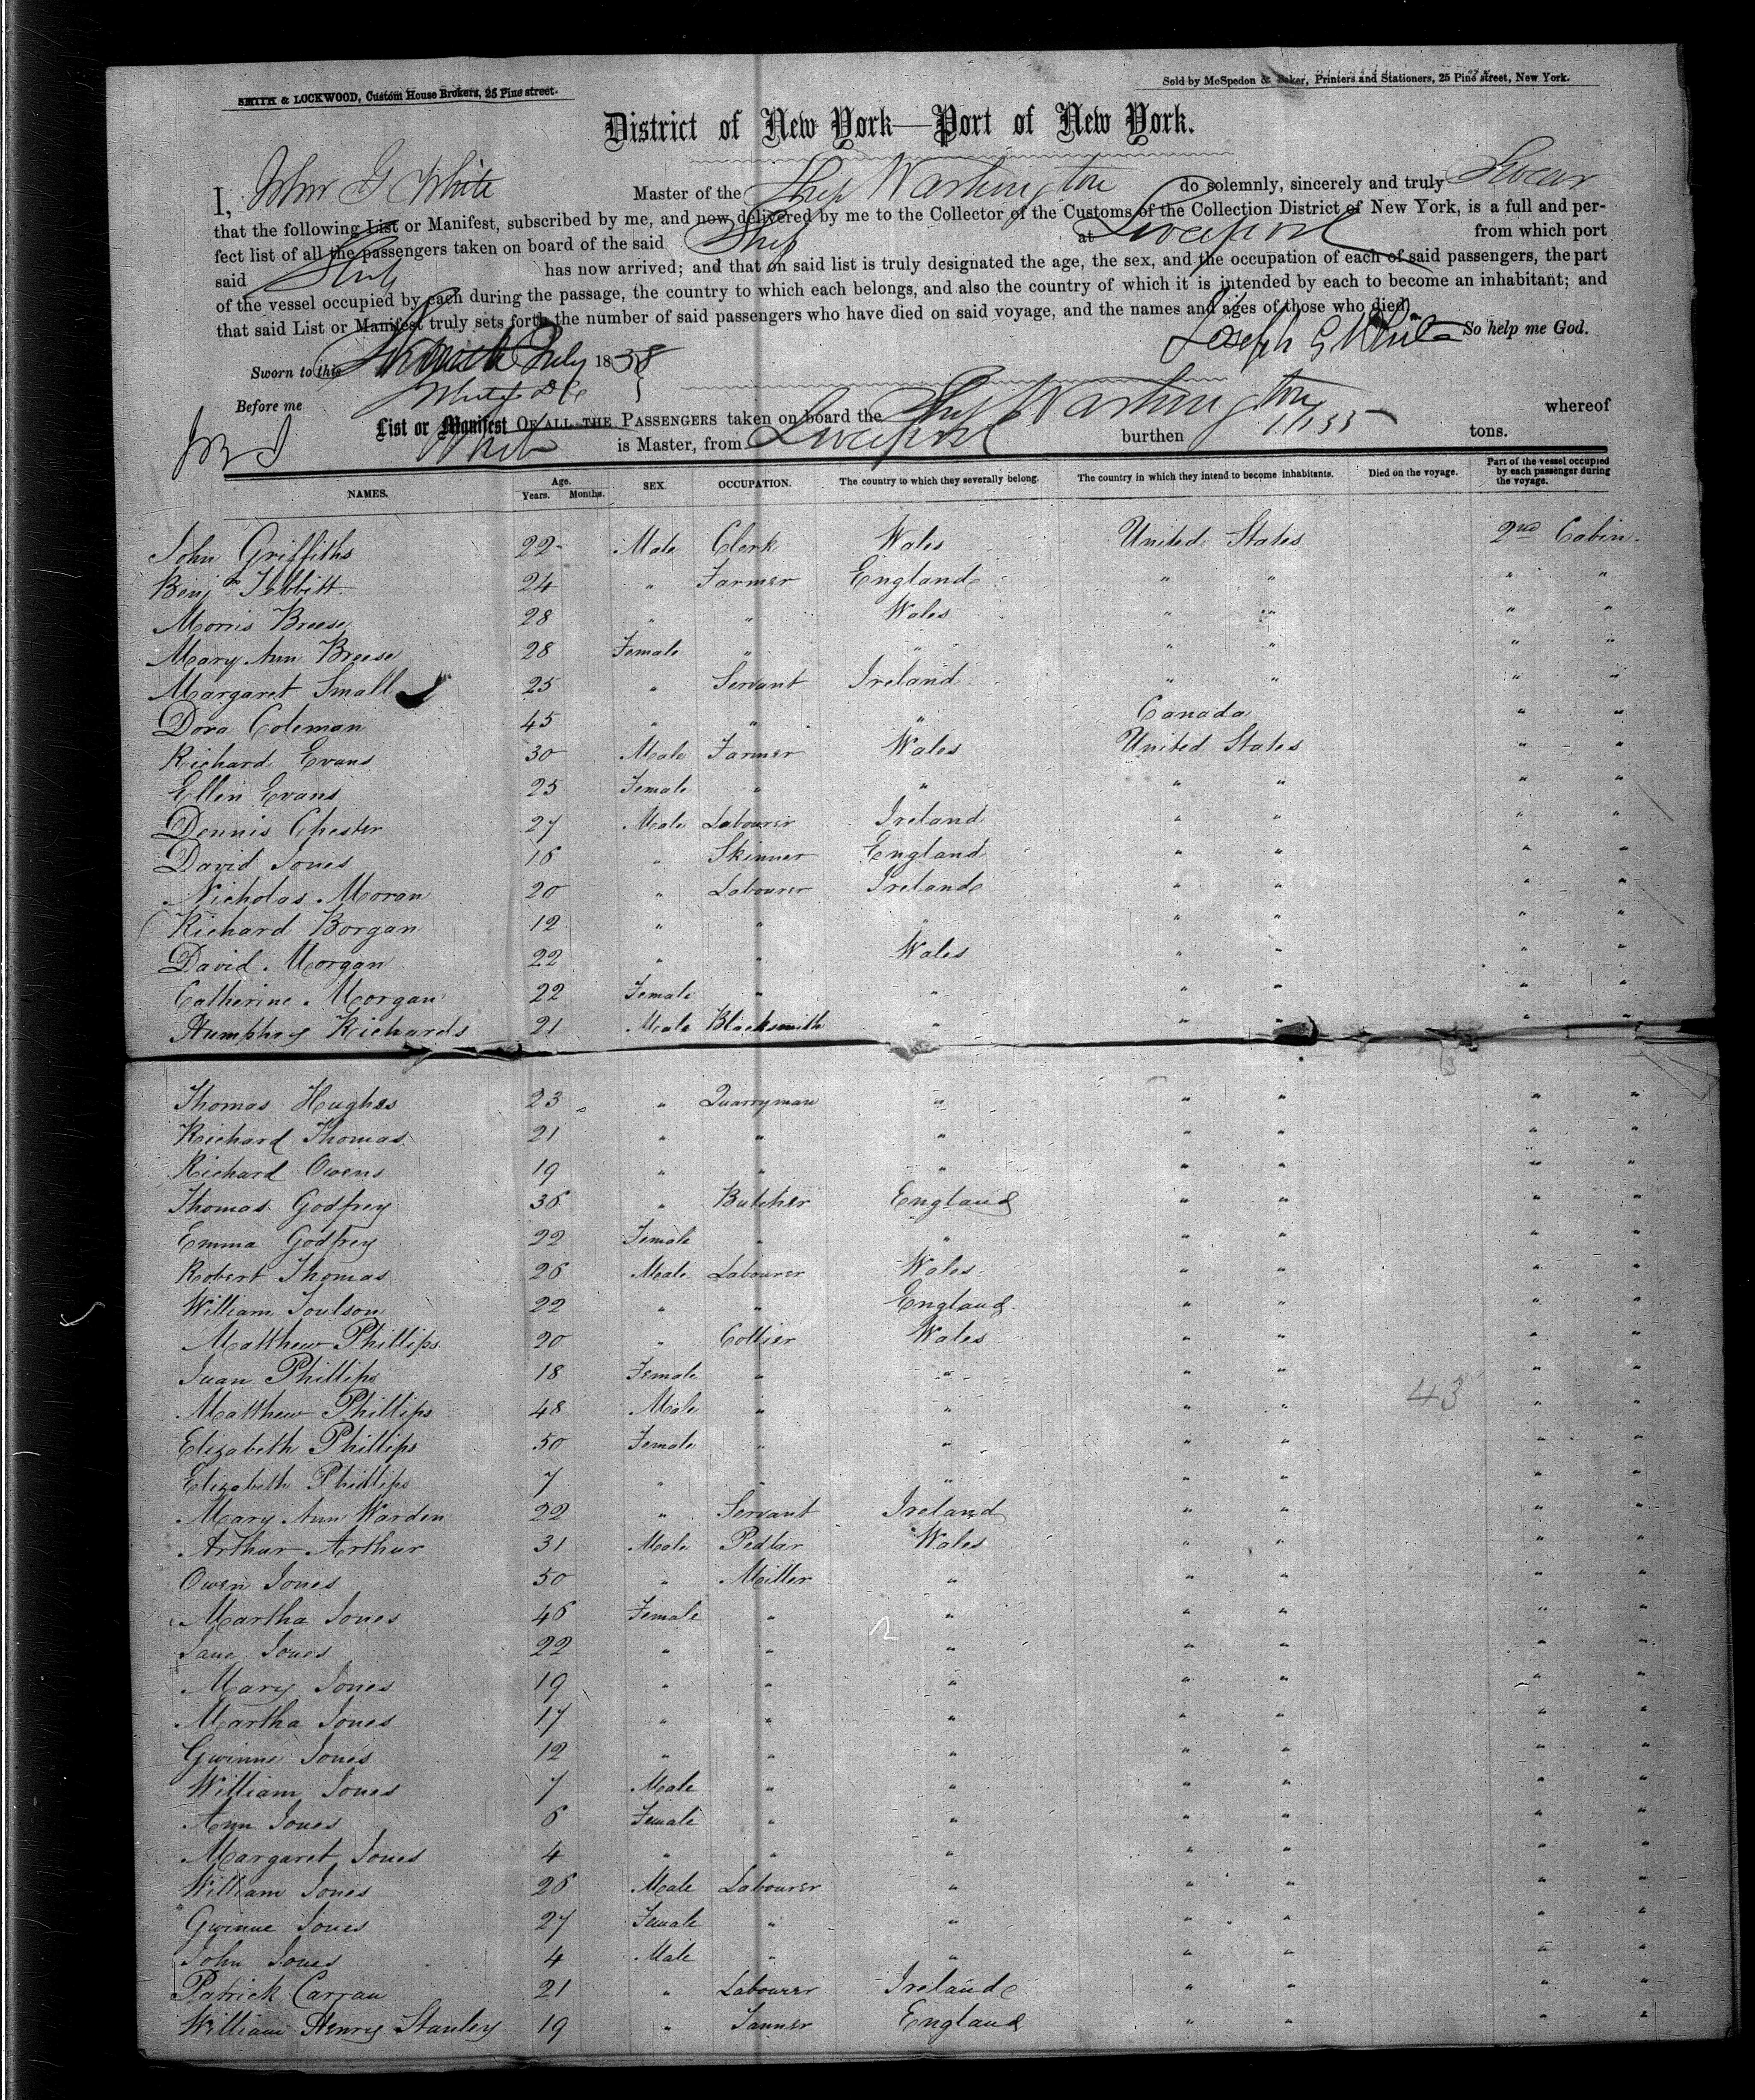 SMITH & LOCKWOOD, Custom House Brokers, 25 Pine street.
Sold by McSpedon & Baker, Printers and Stationers, 25 Pine street, New York.
District of New York—Port of New York.
I, John G White Master of the Ship Washington do solemnly, sincerely and truly Swear
that the following List or Manifest, subscribed by me, and now delivered by me to the Collector of the Customs of the Collection District of New York, is a full and per-
fect list of all the passengers taken on board of the said Ship at Liverpool from which port
said Ship has now arrived; and that on said list is truly designated the age, the sex, and the occupation of each of said passengers, the part
of the vessel occupied by each during the passage, the country to which each belongs, and also the country of which it is intended by each to become an inhabitant; and
that said List or Manifest truly sets forth the number of said passengers who have died on said voyage, and the names and ages of those who died.
Joseph G White So help me God.
Sworn to this July 1858
Before me
List or Manifest OF ALL THE PASSENGERS taken on board the Ship Washington whereof
White is Master, from Liverpool burthen tons.
NAMES. Age. Years. Months. SEX. OCCUPATION. The country to which they severally belong. The country in which they intend to become inhabitants. Died on the voyage. Part of the vessel occupied by each passenger during the voyage.
John Griffiths 22 Male Clerk Wales United States 2nd Cabin.
Benjn Tebbitt 24 " Farmer England " " " "
Morris Breese 28 " " Wales " " " "
Mary Ann Breese 28 Female " " " " " "
Margaret Small 25 " Servant Ireland " " " "
Dora Coleman 45 " " " Canada " "
Richard Evans 30 Male Farmer Wales United States " "
Ellin Evans 25 Female " " " " " "
Dennis Chester 27 Male Labourer Ireland " " " "
David Jones 16 " Skinner England " " " "
Nicholas Moran 20 " Labourer Ireland " " " "
Richard Borgan 12 " " " " " " "
David Morgan 22 " " Wales " " " "
Catherine Morgan 22 Female " " " " " "
Humphrey Richards 21 Male Blacksmith " " " " "
Thomas Hughes 23 " Quarryman " " " " "
Richard Thomas 21 " " " " " " "
Richard Owens 19 " " " " " " "
Thomas Godfrey 36 " Butcher England " " " "
Emma Godfrey 22 Female " " " " " "
Robert Thomas 26 Male Labourer Wales " " " "
William Toulson 22 " " England " " " "
Matthew Phillips 20 " Collier Wales " " " "
Juan Phillips 18 Female " " " " " "
Matthew Phillips 48 Male " " " " 43 " "
Elizabeth Phillips 50 Female " " " " " "
Elizabeth Phillips 7 " " " " " " "
Mary Ann Warden 22 " Servant Ireland " " " "
Arthur Arthur 31 Male Pedlar Wales " " " "
Owen Jones 50 " Miller " " " " "
Martha Jones 46 Female " " " " " "
Jane Jones 22 " " " " " " "
Mary Jones 19 " " " " " " "
Martha Jones 17 " " " " " " "
Gwinne Jones 12 " " " " " " "
William Jones 7 Male " " " " " "
Ann Jones 6 Female " " " " " "
Margaret Jones 4 " " " " " " "
William Jones 26 Male Labourer " " " " "
Gwinne Jones 27 Female " " " " " "
John Jones 4 Male " " " " " "
Patrick Carran 21 " Labourer Ireland " " " "
William Henry Stanley 19 " Tanner England " " " "